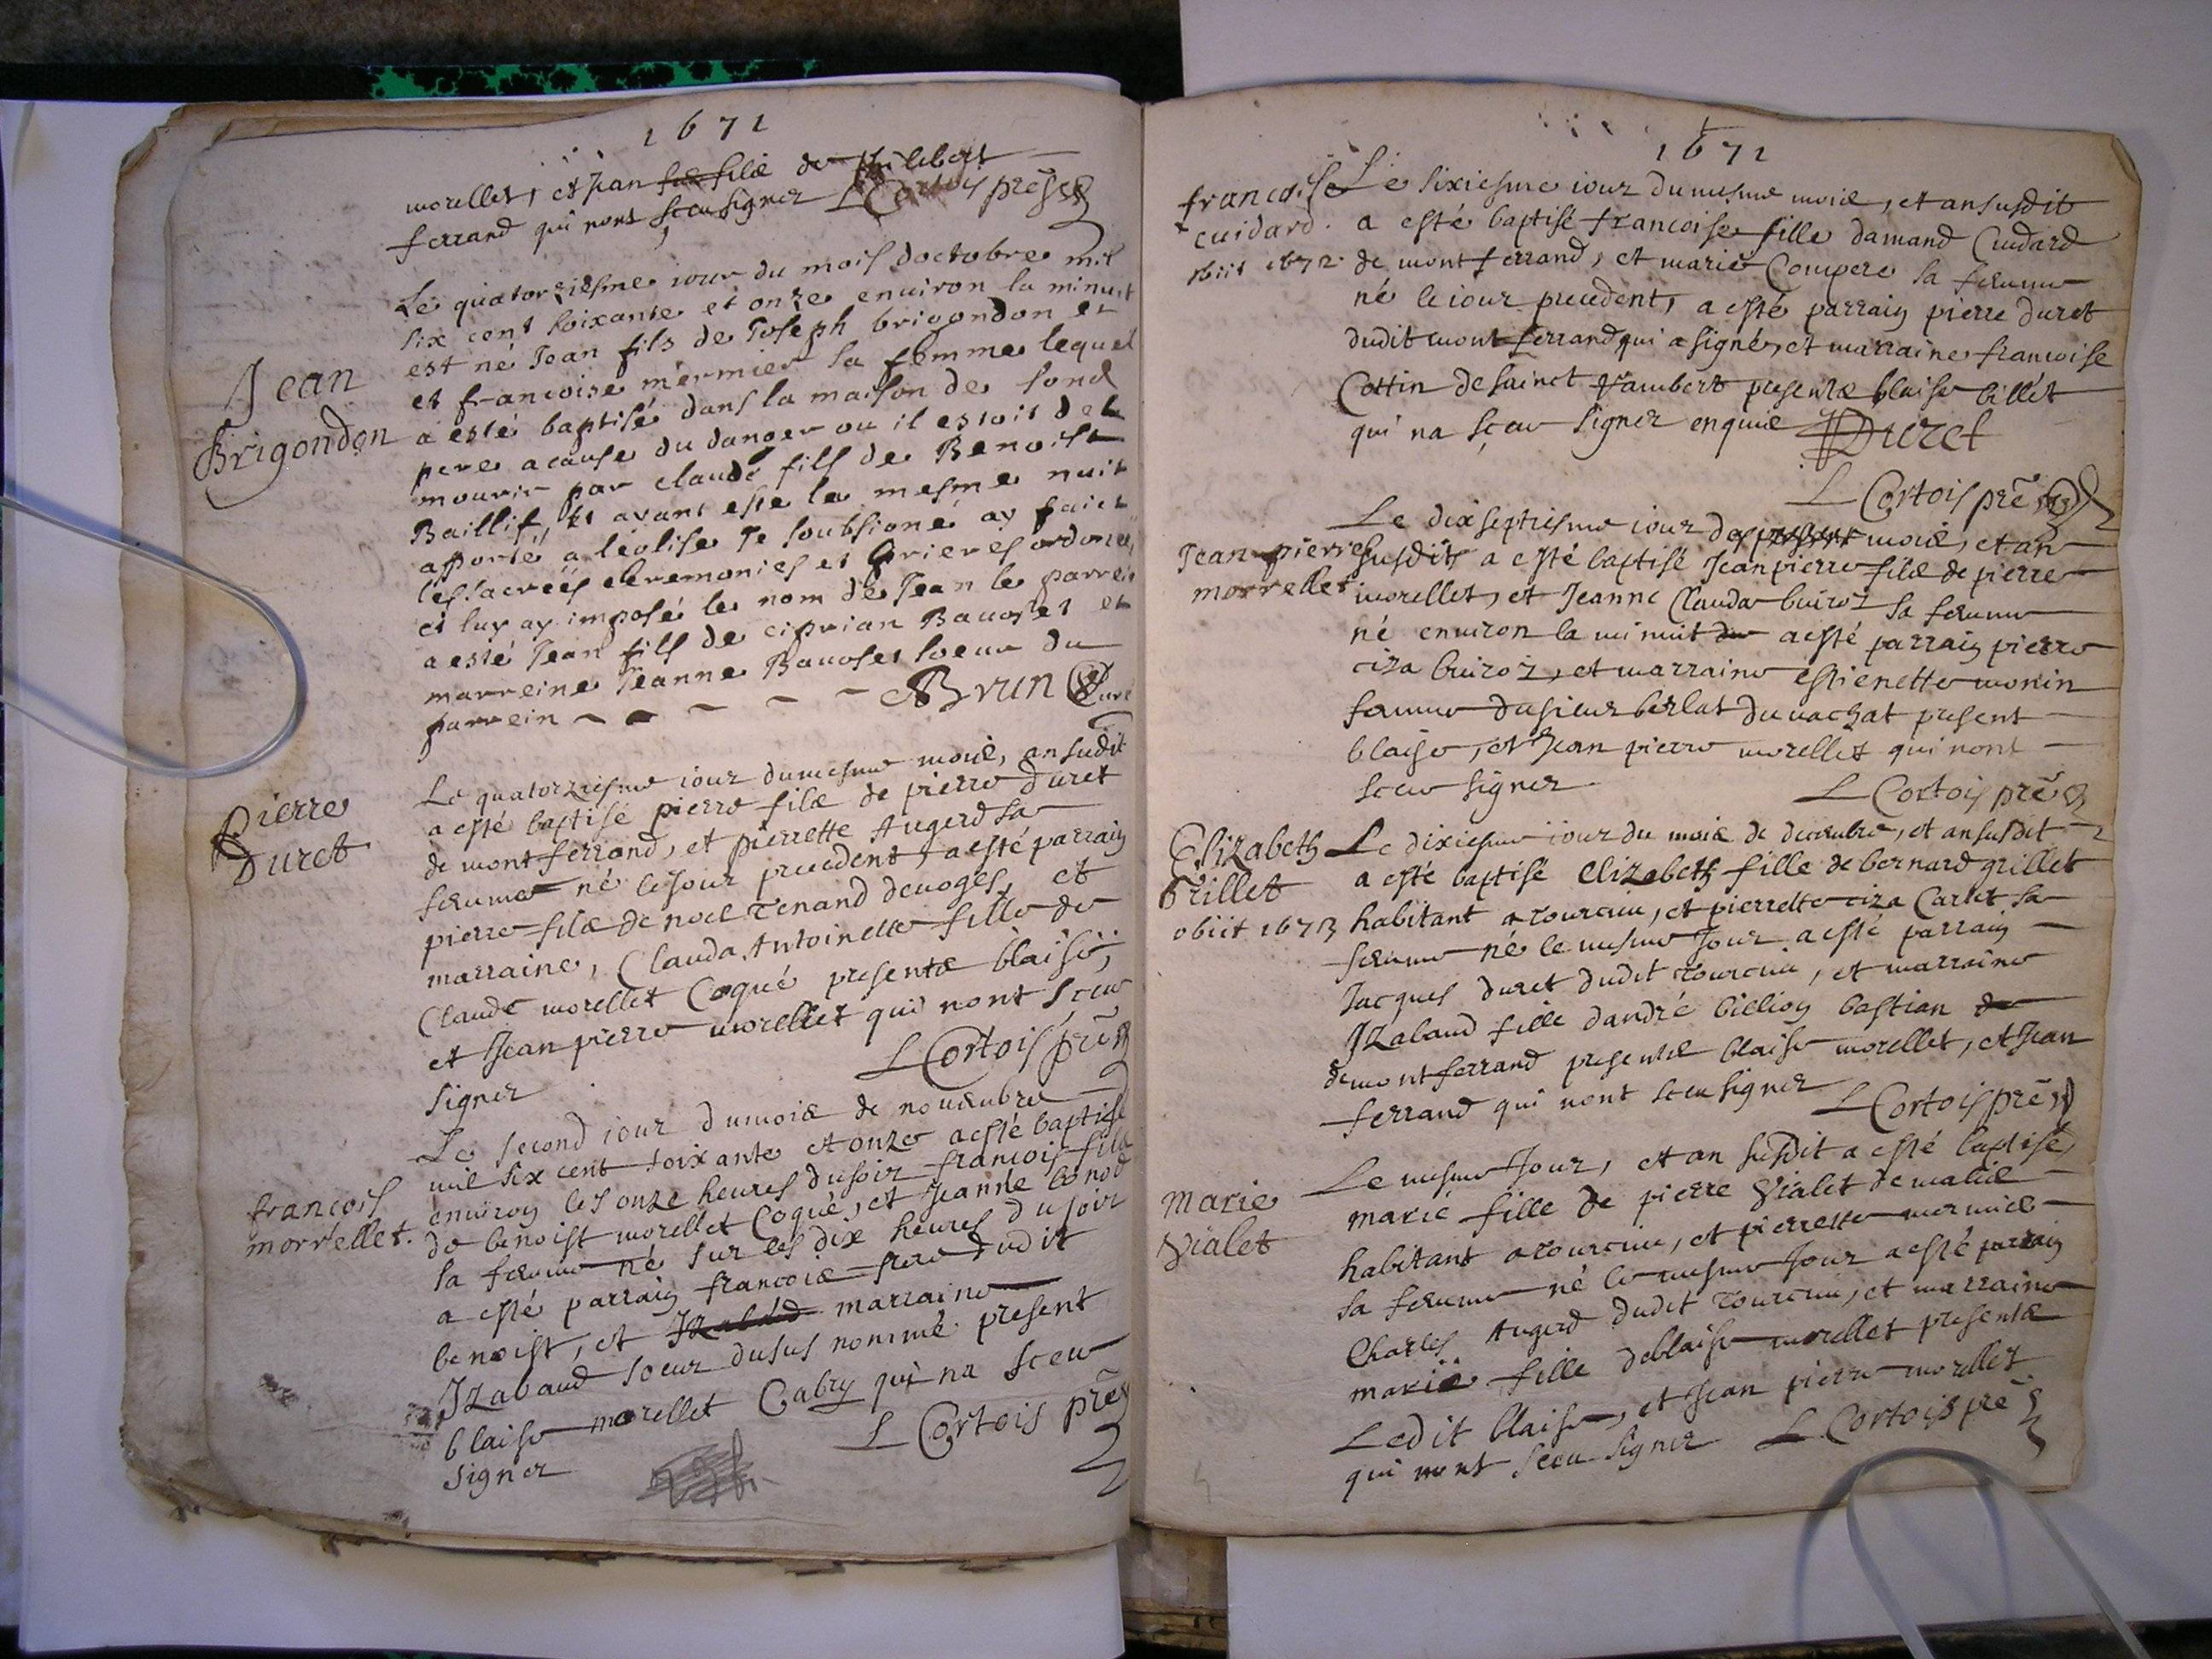 1671
morellet, et Jean fils de philibert
ferrand qui nont sceu signer L Cortois prē
Le quatorziesme iour du mois doctobre mil
six cent soixante et onze enuiron la minuit
est né Jean fils de Joseph brigondon et
et francoise mermier sa femme lequel
a esté baptisé dans la maison de sond
pere a cause du danger ou il estoit de
mourir par claude fils de Benoist
Baillif, et ayant este la mesme nuit
apporté a leglise Je soubsigné ay faict
les sacrées ceremonies et prieres ordoné,
et luy ay imposé le nom de Jean le parrein
a esté Jean fils de ciprian Bauoset et
marreine Jeanne Bauoset soeur du
parrein Brun Curé
Jean
Brigondon
Le quatorziesme iour du mesme mois, an susdit
a esté baptisé pierre fils de pierre duret
de montferrand, et pierrette Augerd sa
femme né le jour precedent, a esté parrain
pierre fils de noel Tenand deuoges, et
marraine, Clauda Antoinette fille de
Claude morellet Coqué presents blaise,
et Jean pierre morellet qui nont sceu
signer L Cortois prē
pierre
Duret
Le second iour du mois de nouembre
mil six cent soixante et onze a esté baptisé
enuiron les onze heures du soir francois fils
de benoist morellet Coqué, et Jeanne bonod
sa femme né sur les dix heures du soir
a esté parrain francois frere dudit
benoist, et marraine
Izabaud soeur dusus nommé present
blaise morellet Cabry qui na sceu
signer L Cortois prē
francois
morrellet.
1671
francoise
cuidard.
obiit 1672.
Le sixiesme iour du mesme mois, et an susdit
a esté baptisé francoise fille damand Cuidard
de montferrand, et marie Compere sa femme
né le iour precedent, a esté parrain pierre duret
dudit montferrand qui a signé, et marraine francoise
Cottin de sainct rambert presents blaise billiet
qui na sceu signer enquis Duret
L Cortois prē
Jean pierre
morrellet
Le dixseptiesme iour des mois, et an
susdits a esté baptisé Jean pierre fils de pierre
morellet, et Jeanne Clauda buiroz sa femme
né enuiron la minuit a esté parrain pierre
ciza buiroz, et marraine estienette monin
femme du sieur berlat du uachat present
blaise, et Jean pierre morellet qui nont
sceu signer L Cortois prē
Elizabeth
Grillet
obiit 1673
Le dixiesme iour du mois de decembre, et an susdit
a esté baptisé Elizabeth fille de bernard grillet
habitant a tourcieu, et pierrette ciza Carlet sa
femme né le mesme Jour a esté parrain
Jacques duret dudit tourcieu, et marraine
Izabaud fille dandré billion bastian de
de montferrand presents blaise morellet, et Jean
ferrand qui nont sceu signer L Cortois prē
Marie
Vialet
Le mesme Jour, et an susdit a esté baptisé,
marie fille de pierre Vialet de malié
habitant a tourcieu, et pierrette mermier
sa femme né le mesme Jour a esté parrain
Charles Augerd dudit tourcieu, et marraine
marie fille de blaise morellet presents
Ledit blaise, et Jean pierre morellet
qui nont sceu signer L Cortois prē